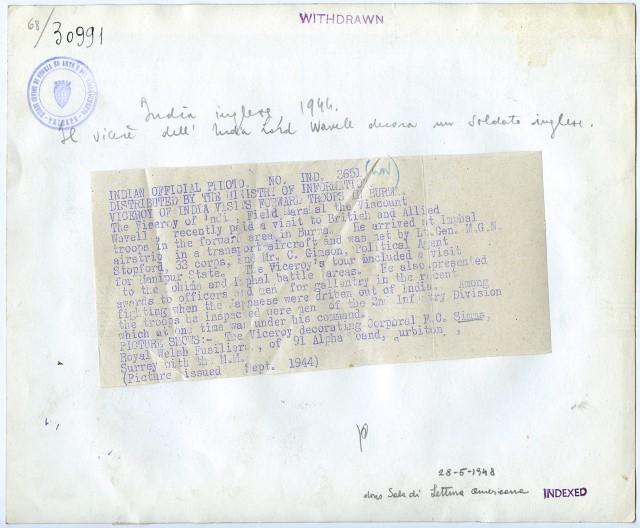 WITHDRAWN
68/30991
India inglese, 1944.
Il viceré dell' India Lord Wavell decora un soldato inglese.
INDIAN OFFICIAL PHOTO. NO. IND. 3651
DISTRIBUTED BY THE MINISTRY OF INFORMATION
VICEROY OF INDIA VISITS FORWARD TROOPS IN BURMA.
The Viceroy of India, Field Marshal the Viscount
Wavell recently paid a visit to British and Allied
troops in the forward area in Burma. He arrived at Imphal
airstrip in a transport aircraft and was met by Lt.Gen. M.G.N.
Stopford, 33 corps, and Mr. C. Gimson, Political Agent
for Manipur State. The Viceroy's tour included a visit
to the Kohima and Imphal battle areas. He also presented
awards to officers and men for gallantry in the recent
fighting when the Japanese were driven out of India. Among
the troops he inspected were men of the 2nd Infantry Division
which at one time was under his command.
PICTURE SHOWS:- The Viceroy decorating Corporal F.C. Simms,
Royal Welsh Fusiliers, of 91 Alpha Road, Surbiton,
Surrey with the M.M.
(Picture issued Sept. 1944)
28-5-1948
dono Sala di Lettura americana
INDEXED